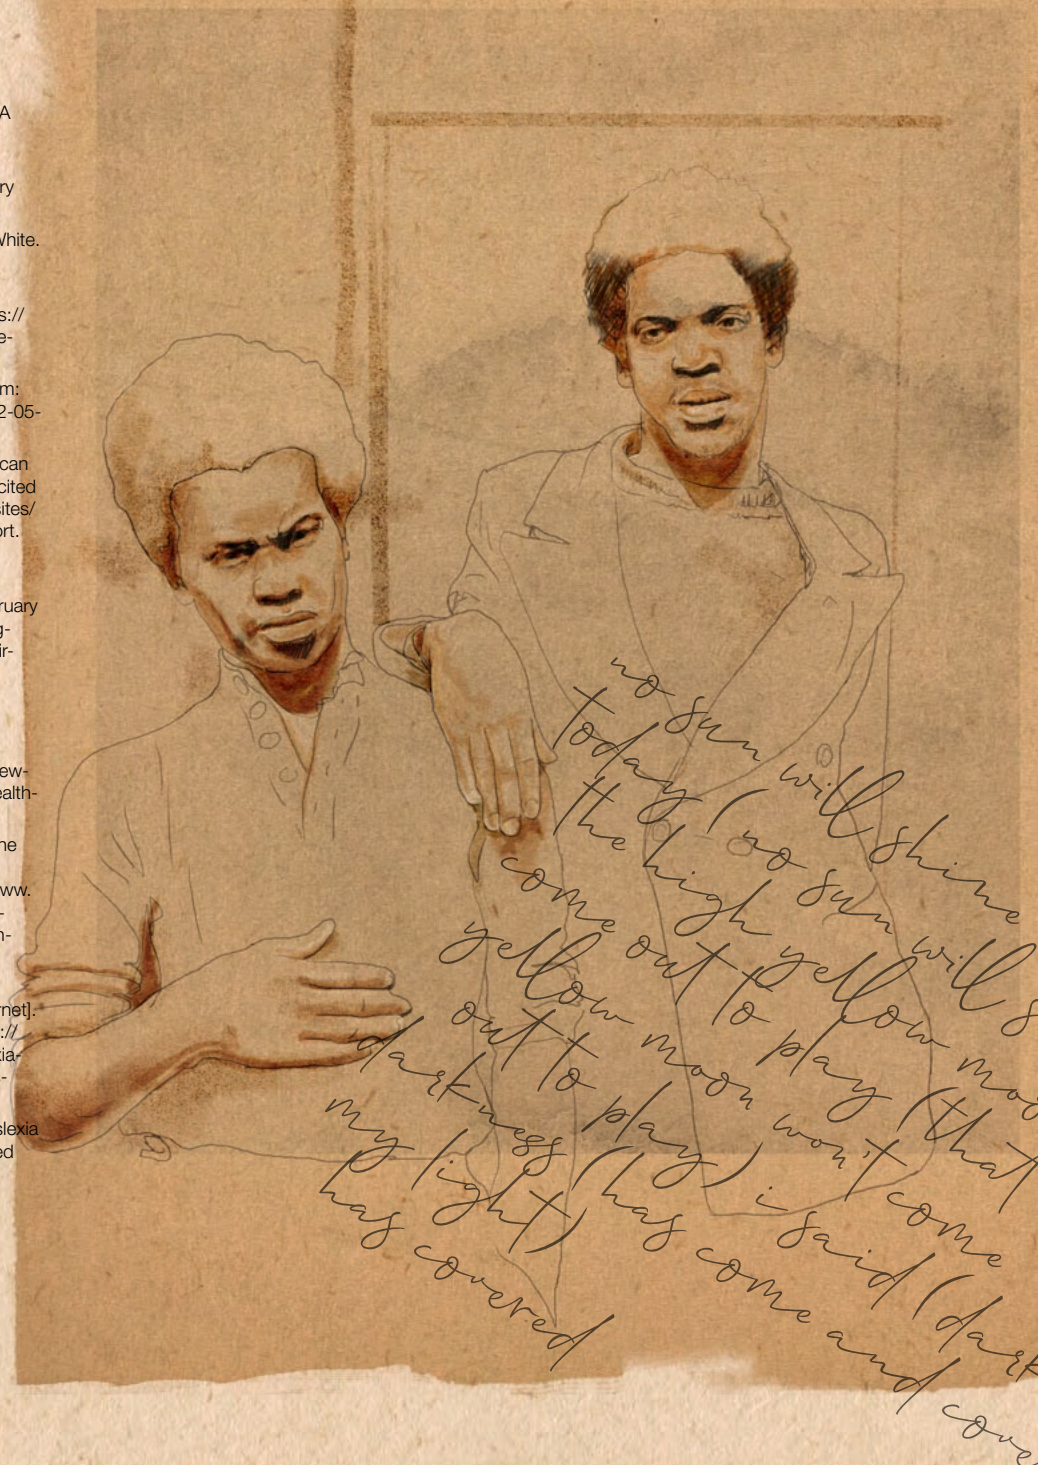 A
ry
White.
s://
e-
m:
2-05-
can
cited
sites/
ort.
ruary
g-
ir-
ew-
ealth-
ne
ww.
-
n-
rnet].
://
xia-
-
slexia
ed
no sun will shine
today (no sun will s
the high yellow moo
come out to play (that
yellow moon won't come
out to play) i said (dark
darkness (has come and cove
my light)
has covered